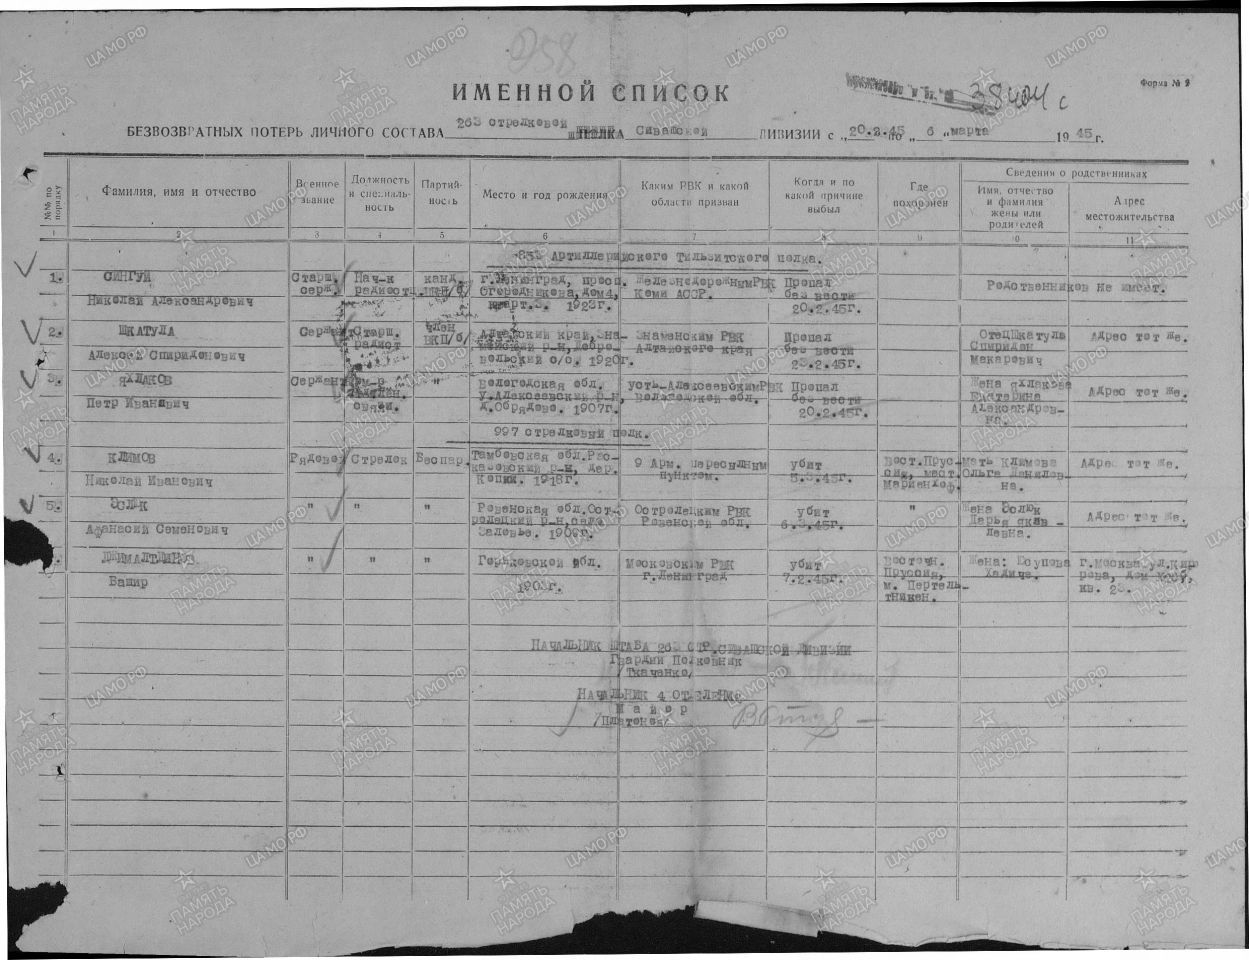 958
ИМЕННОЙ СПИСОК
Форма № 9
38404 с
БЕЗВОЗВРАТНЫХ ПОТЕРЬ ЛИЧНОГО СОСТАВА 263 стрелковой Сивашской ДИВИЗИИ с „20.2.45 по „ 6 „ марта 1945 г.
№№ по порядку
Фамилия, имя и отчество
Военное звание
Должность и специальность
Партийность
Место и год рождения
Каким РВК и какой области призван
Когда и по какой причине выбыл
Где похоронен
Сведения о родственниках
Имя, отчество и фамилия жены или родителей
Адрес местожительства
1 2 3 4 5 6 7 8 9 10 11
853 Артиллерийского Тильзитского полка.
1. СИНГУЙ Старш. Нач-к канд. г.Ленинград, просп. ЖелезнодорожнымРВК Пропал Родственников не имеет.
серж. радиост. Огородникова, дом4, Коми АССР. без вести
Николай Александрович кварт.3. 1923г. 20.2.45г.
2. ШКАТУЛА Сержант Старш. Член Алтайский край, Зна- Знаменским РВК Пропал ОтецШкатула Адрес тот же.
радист ВКП/б/ менский р-н, Добро- Алтайского края без вести Спиридон
Алексей Спиридонович вольский с/с. 1920г. 20.2.45г. Макарович
3. ЯХЛАКОВ Сержант " Вологодская обл. Усть-АлексеевскимРВК Пропал Жена Яхлакова Адрес тот же.
Петр Иванович связи. У.Алексеевский р-н, Вологодской обл. без вести Екатерина
д.Обрядово. 1907г. 20.2.45г. Александров-
на.
997 стрелковый полк.
4. КЛИМОВ Рядовой Стрелок Беспар. Тамбовская обл.Рас- 9 Арм. пересыльным убит Вост.Прус- мать Климова Адрес тот же.
казовский р-н, дер. пунктом. 5.3.45г. сия, маст. Ольга Данилов-
Николай Иванович Копии. 1918г. Мариенхоф. на.
5. ЭСЛЮК " " " Ровенская обл.Ост- Острожецким РВК убит " Жена Эслюк Адрес тот же.
рожецкий р-н, село Ровенской обл. 6.3.45г. Дарья Яков-
Афанасий Семенович Залевье. 1909г. левна.
" " " Горьковской обл. Московским РВК убит Восточн. Жена: Юсупова г.Москва ул.Киро-
Башир 1903г. г.Ленинград 7.2.45г. Пруссия, Хадича. рова, дом
м. Пертель- кв. 23.
тникен.
НАЧАЛЬНИК ШТАБА 263 СТР.СИВАШСКОЙ ДИВИЗИИ
Гвардии Полковник
/Ткаченко/
НАЧАЛЬНИК 4 ОТДЕЛЕНИЯ
Майор
/Платонов/